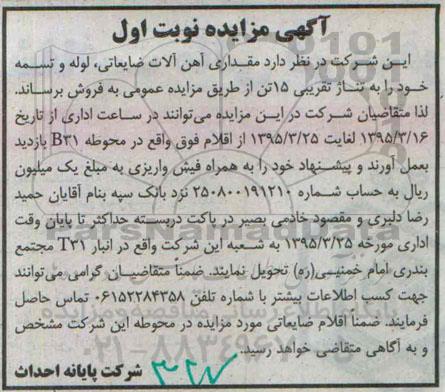 آگهی مزایده نوبت اول
این شرکت در نظر دارد مقداری آهن آلات ضایعاتی، لوله و تسمه
خود را به تناژ تقریبی ۱۵تن از طریق مزایده عمومی به فروش برساند.
لذا متقاضیان شرکت در این مزایده می‌توانند در ساعت اداری از تاریخ
۱۳۹۵/۳/۱۶ لغایت ۱۳۹۵/۳/۲۵ از اقلام فوق واقع در محوطه B۳۱ بازدید
بعمل آورند و پیشنهاد خود را به همراه فیش واریزی به مبلغ یک میلیون
ریال به حساب شماره ۲۵۰۸۰۰۱۹۱۲۱۰ نزد بانک سپه بنام آقایان حمید
رضا دلیری و مقصود خادمی بصیر در پاکت دربسته حداکثر تا پایان وقت
اداری مورخه ۱۳۹۵/۳/۲۵ به شعبه این شرکت واقع در انبار T۳۱ مجتمع
بندری امام خمینی(ره) تحویل نمایند. ضمناً متقاضیان گرامی می‌توانند
جهت کسب اطلاعات بیشتر با شماره تلفن ۰۶۱۵۲۲۸۴۳۵۸ تماس حاصل
فرمایند. ضمناً اقلام ضایعاتی مورد مزایده در محوطه این شرکت مشخص
و به آگاهی متقاضی خواهد رسید.
شرکت پایانه احداث
ParsNamadData
۰۲۱-۸۸۳۴۹۶۷۰